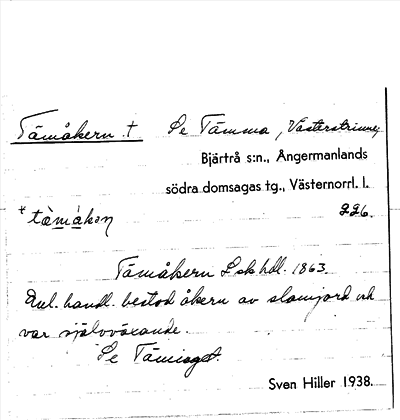 Tämåkern † Se Tämma, Västerstrinne,
Bjärtrå s:n., Ångermanlands
södra domsagas tg., Västernorrl. l.
* tàmåken 226.
Tämåkern L sk hdl. 1863.
Enl. handl. bestod åkern av slamjord och
var självväxande.
Se Tämioget.
Sven Hiller 1938.